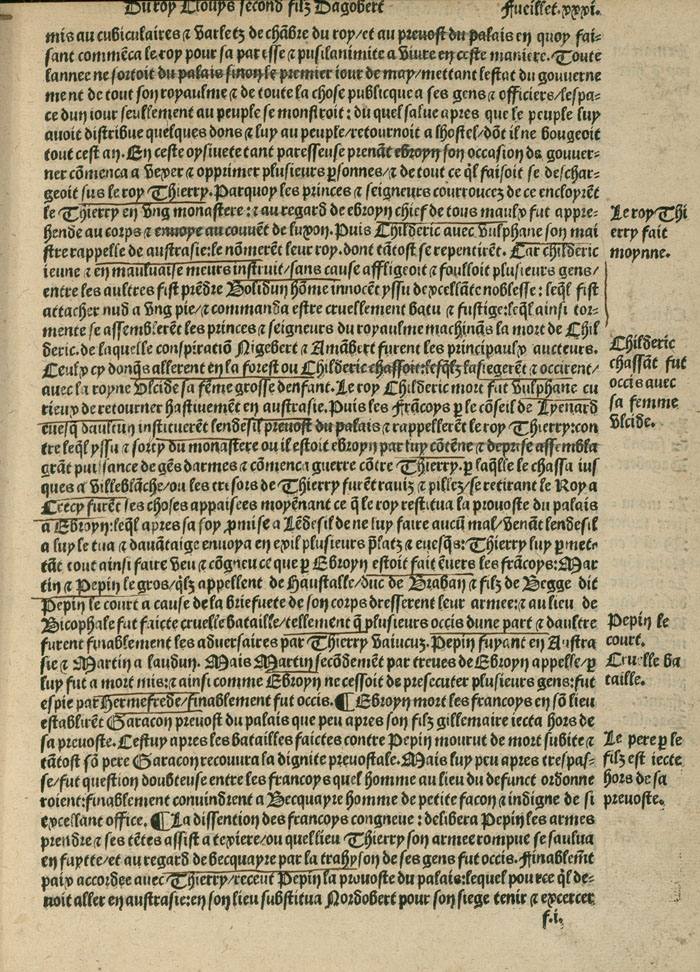 Du roy Clouys second filz Dagobert Fueillet.xxxi.
mis au cubiculaires & varletz de chãbre du roy/et au preuost du palais en quoy fai-
sant commẽca le roy pour sa paresse & pusilanimite a viure en ceste maniere. Toute
lannee ne sortoit du palais sinon le premier iour de may/mettant lestat du gouuerne
ment de tout son royaulme & de toute la chose publicque a ses gens & officiers/lespa-
ce dun iour seullement au peuple se monstroit: du quel salue apres que le peuple luy
auoit distribue quelques dons & luy au peuple/retournoit a lhostel/dõt il ne bougeoit
tout cest an. En ceste oysiuete tant paresseuse prenãt ebroyn son occasion de gouuer-
ner cõmenca a vexer & opprimer plusieurs p̱sonnes/& de tout ce q̃l faisoit se deschar-
geoit sus le roy Thierry. Parquoy les princes & seigneurs courroucez de ce encloyrẽt
le Thierry en vng monastere: & au regard de ebroyn chief de tous maulx fut appre-
hende au corps & enuoye au couuẽt de luxon. Puis Childeric auec vulphane son mai
stre rappelle de austrasie: le nõmerẽt leur roy. dont tãtost se repentirẽt. Car childeric
ieune & en mauluaise meurs instruit/sans cause affligeoit & foulloit plusieurs gens/
entre les aultres fist prẽdre Bolidun hõme innocẽt yssu dexcellãte noblesse: leq̃l fist
attacher nud a vng pie/& commanda estre cruellement batu & fustige: leq̃l ainsi tor-
mente se assemblerẽt les princes & seigneurs du royaulme machinãs la mort de Chil
deric. de laquelle conspiratiõ Nigebert & Amãbert furent les principaulx aucteurs.
Ceulx cy donq̃s allerent en la forest ou Childeric chassoit: lesq̃lz lasiegerẽt & occirent/
auec la royne Ulcide sa fẽme grosse denfant. Le roy Childeric mort fut vulphane cu
rieux de retourner hastiuement en austrasie. Puis les Frãcoys p̱ le cõseil de Lyenard
euesq̃ daultun instituerẽt lendesil preuost du palais & rappellerẽt le roy Thierry: con
tre leq̃l yssu & sorty du monastere ou il estoit ebroyn par luy cõtẽne & deprise assembla
grãt puissance de gẽs darmes & cõmenca guerre cõtre Thierry. p̱ laq̃lle le chassa ius
ques a villeblãche/ou les tresors de Thierry furẽt rauiz & pillez/se retirant le Roy a
Crecy furẽt les choses appaisees moyẽnant ce q̃ le roy restitua la prouoste du palais
a Ebroyn: leq̃l apres sa foy p̱mise a Lẽdesil de ne luy faire aucũ mal/venãt lendesil
a luy le tua & dauãtaige enuoya en exil plusieurs p̃latz & euesq̃s: Thierry luy p̱mett
tãt tout ainsi faire veu & cõgneu ce que p̱ Ebroyn estoit fait ẽuers les frãcoys: Mar
tin & Pepin le gros/q̃lz appellent de Haustalle/duc de Braban & filz de Begge dit
Pepin le court a cause de la briefuete de son corps dresserent leur armee: & au lieu de
Bicophale fut faicte cruelle bataille/tellement q̃ plusieurs occis dune part & daultre
furent finablement les aduersaires par Thierry vaicuz. Pepin fuyant en Austra
sie & Martin a laudun. Mais Martin secõdement par treues de Ebroyn appelle/p̱
luy fut a mort mis: & ainsi comme Ebroyn ne cessoit de presecuter plusieurs gens: fut
espie par Hermefrede/finablement fut occis. ¶ Ebroyn mort les francoys en sõ lieu
establirẽt Garacon preuost du palais que peu apres son filz gillemaire iecta hors de
sa preuoste. Cestuy apres les batailles faictes contre Pepin mourut de mort subite &
tãtost sõ pere Garacon recouura la dignite preuostale. Mais luy peu apres trespas-
se/fut question doubteuse entre les francoys quel homme au lieu du defunct ordonne
roient: finablement conuindrent a Becquayre homme de petite facon & indigne de si
excellant office. ¶ La dissention des francoys congneue: delibera Pepin les armes
prendre & ses tẽtes assist a texiere/ou quel lieu Thierry son armee rompue se saulua
en fuytte/et au regard de becquayre par la trahyson de ses gens fut occis. Finablemẽt
paix accordee auec Thierry/receut Pepin la prouoste du palais: lequel pource q̃l de-
uoit aller en austrasie: en son lieu substitua Nordobert pour son siege tenir & excercer
f.i.
Le roy Thi
erry fait
moynne.
Childeric
chassãt fut
occis auec
sa femme
vlcide.
Pepin le
court.
Cruelle ba
taille.
Le pere p̱ le
filz est iecte
hors de sa
preuoste.